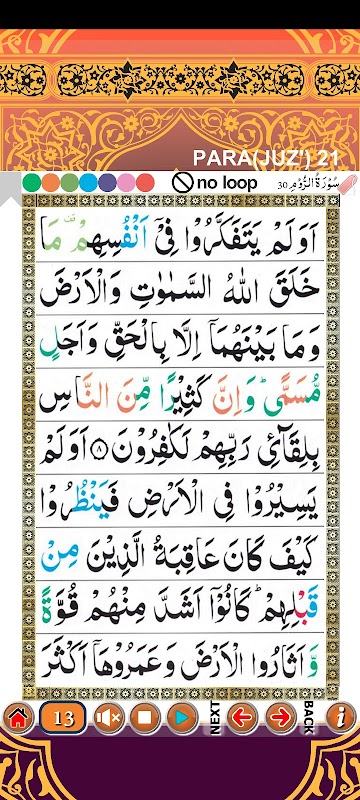 PARA(JUZ') 21
no loop
سُوْرَةُ الرُّوْمِ 30
اَوَلَمْ يَتَفَكَّرُوْا فِىْۤ اَنْفُسِهِمْ ۫ مَا
خَلَقَ اللّٰهُ السَّمٰوٰتِ وَالْاَرْضَ
وَمَا بَيْنَهُمَاۤ اِلَّا بِالْحَقِّ وَاَجَلٍ
مُّسَمًّى ؕ وَاِنَّ كَثِيْرًا مِّنَ النَّاسِ
بِلِقَآئِ رَبِّهِمْ لَكٰفِرُوْنَ ﴿۸﴾ اَوَلَمْ
يَسِيْرُوْا فِى الْاَرْضِ فَيَنْظُرُوْا
كَيْفَ كَانَ عَاقِبَةُ الَّذِيْنَ مِنْ
قَبْلِهِمْ ؕ كَانُوْۤا اَشَدَّ مِنْهُمْ قُوَّةً
وَّاَثَارُوا الْاَرْضَ وَعَمَرُوْهَاۤ اَكْثَرَ
13
NEXT
BACK
i